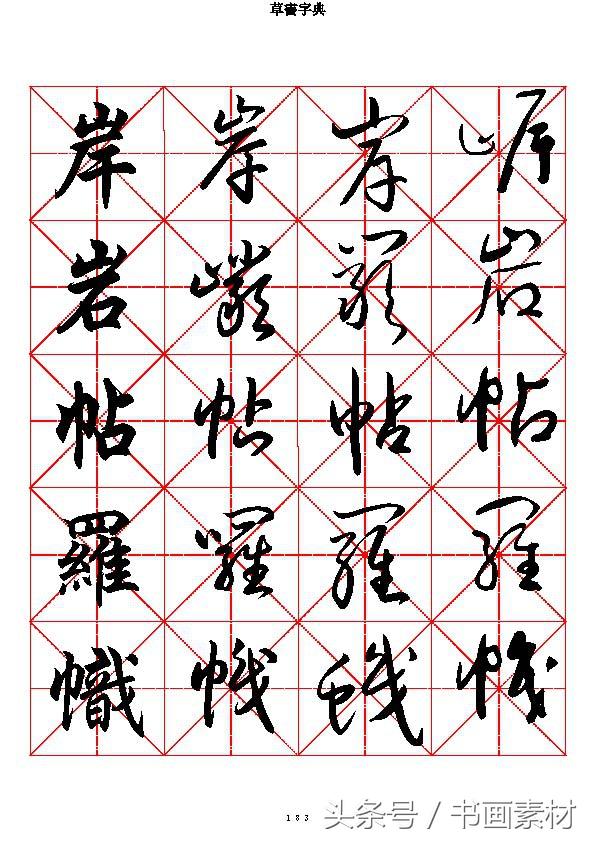 草書字典
岸 岸 岸 岸
岩 巖 巖 岩
帖 帖 帖 帖
羅 囉 羅 羅
幟 幟 幟 幟
183
头条号 / 书画素材